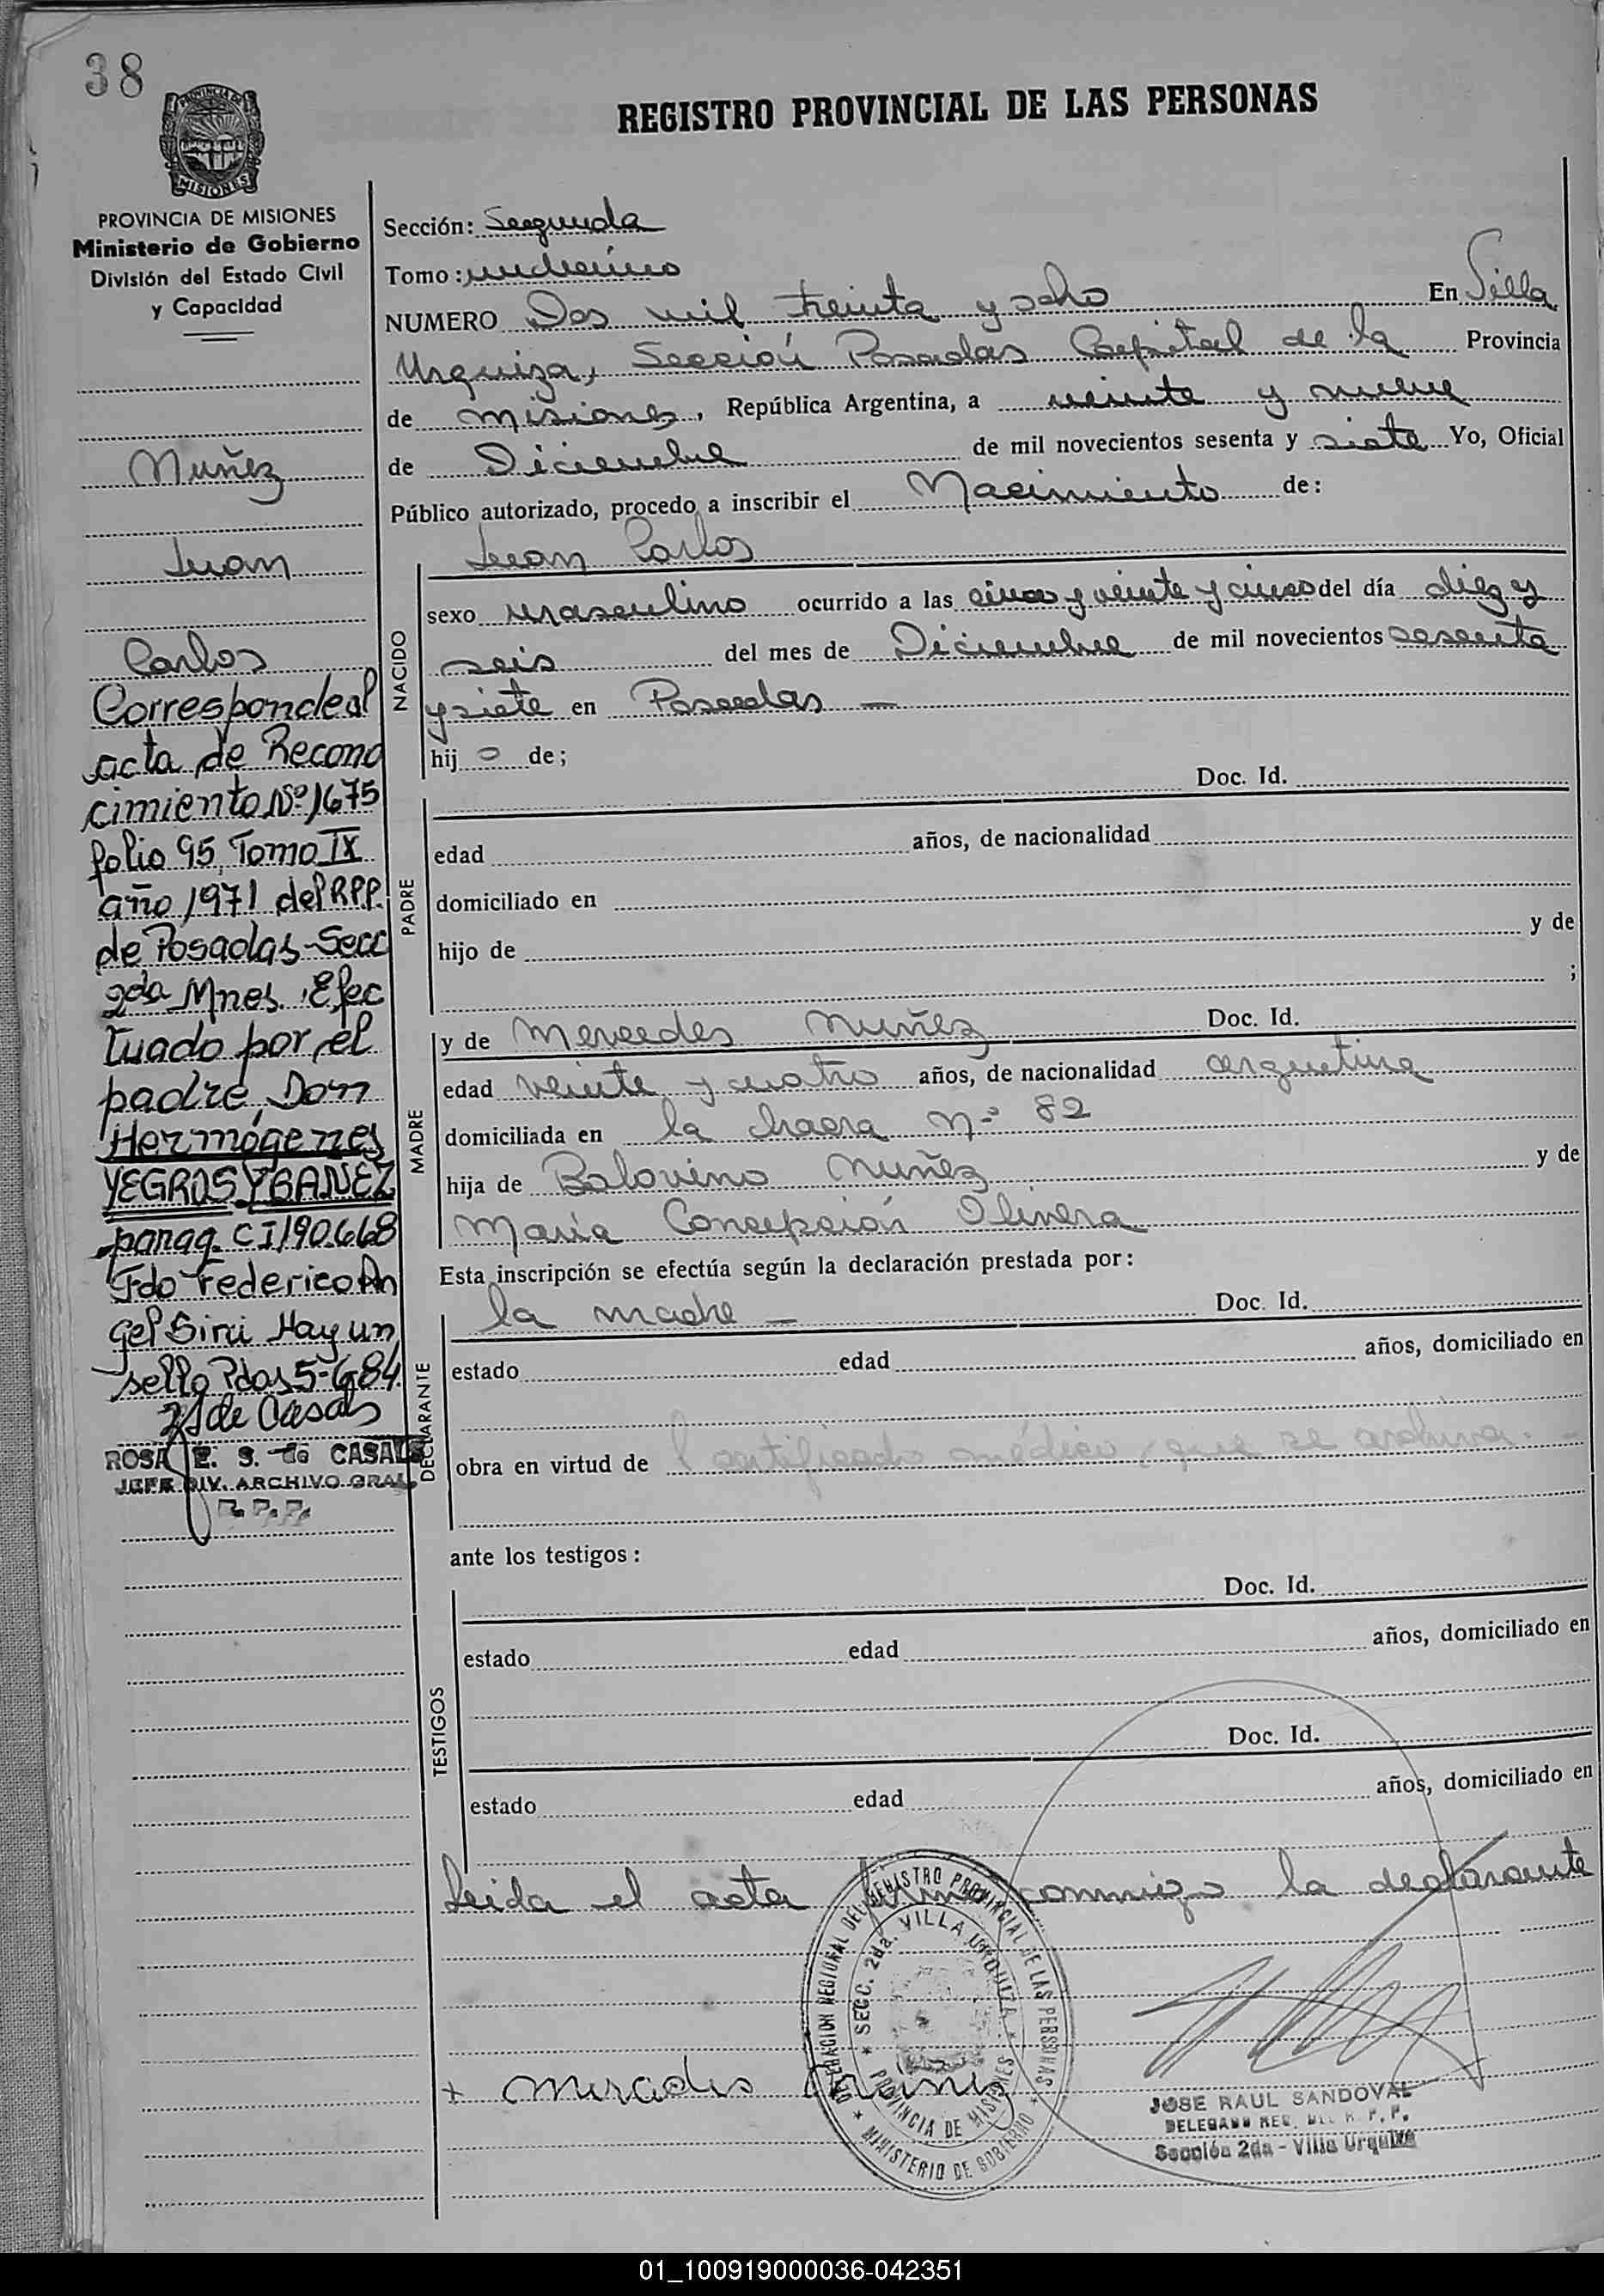 38
PROVINCIA DE
MISIONES
REGISTRO PROVINCIAL DE LAS PERSONAS
PROVINCIA DE MISIONES
Ministerio de Gobierno
División del Estado Civil
y Capacidad
Nuñez
Juan
Carlos
Corresponde al
acta de Recono
cimiento Nº 1675
folio 95 Tomo IX
año 1971 del R.P.P.
de Posadas-Secc
2da Mnes. Efec
tuado por el
padre, Don
Hermógenes
YEGROS YBANEZ
parag. CI 190.668
Fdo Federico An
gel Hay un
sello Pdas 5-6-84
de Casals
ROSA E. S. de CASALS
JEFE DIV. ARCHIVO GRAL.
R.P.P.
Sección: Segunda
Tomo: undécimo
NUMERO Dos mil treinta y ocho En Villa
Urquiza, Sección Posadas Capital de la Provincia
de Misiones, República Argentina, a veinte y nueve
de Diciembre de mil novecientos sesenta y siete Yo, Oficial
Público autorizado, procedo a inscribir el Nacimiento de:
NACIDO
Juan Carlos
sexo masculino ocurrido a las cinco y veinte y cinco del día diez y
seis del mes de Diciembre de mil novecientos sesenta
y siete en Posadas —
hij o de;
PADRE
Doc. Id.
edad años, de nacionalidad
domiciliado en
hijo de y de
;
MADRE
y de Mercedes Nuñez Doc. Id.
edad veinte y cuatro años, de nacionalidad argentina
domiciliada en la chacra Nº 82
hija de Balovino Nuñez y de
María Concepción Olivera
Esta inscripción se efectúa según la declaración prestada por:
DECLARANTE
la madre — Doc. Id.
estado edad años, domiciliado en
obra en virtud de certificado médico, que se archiva. -
ante los testigos:
TESTIGOS
Doc. Id.
estado edad años, domiciliado en
Doc. Id.
estado edad años, domiciliado en
Leida el acta firma conmigo la declarante
DELEGACION REGIONAL DEL REGISTRO PROVINCIAL DE LAS PERSONAS
* MINISTERIO DE GOBIERNO *
* SECC. 2da. VILLA URQUIZA *
PROVINCIA DE MISIONES
+
JOSE RAUL SANDOVAL
DELEGADO REG. DEL R. P. P.
Sección 2da - Villa Urquiza
01_100919000036-042351